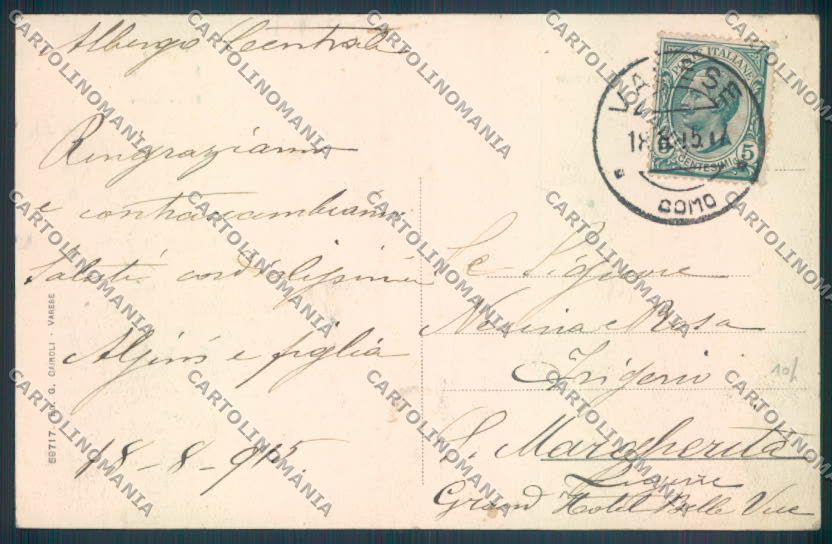 Albergo Centrale
Ringraziamo
e contraccambiamo
Saluti cordialissimi
e figlia
18-8-915.
59717 G. CAIROLI - VARESE
POSTE ITALIANE
5
CENTESIMI
VARESE
18.8.15.
COMO
Le Signore
Rosa
Frigerio
S. Margherita
Ligure
Grand Hotel Belle Vue
10/
CARTOLINOMANIA